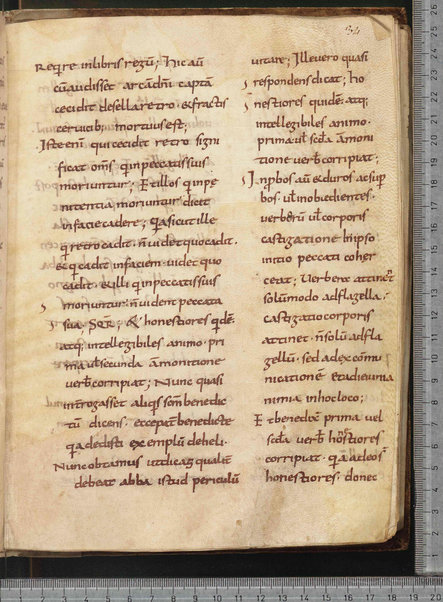 34
Req̄re inlibris regū; hic aū
cū audisset arcā dn̄i captā
cecidit de sella retro · & fractis
cervicib; mortuus est;
Iste enī qui cecidit retro signi
ficat om̄s q̇ in peccatis suis
moriuntur; Et illos q̇ inpe
nitentia moriuntur dicit
in facie cadere; Quia sicut ille
q̇ retro cadit · n̄ videt quo cadit ·
et q̇ cadit in faciem videt quo
cadit · et illi q̇ in peccatis suis
moriuntur n̄ vident peccata
sua, Seq̄t̄; & honestiores q̇dē·
atq; intellegibiles animo · pri
ma vel secunda āmonitione
verb̄ corripiat; Nunc quasi
interrogasset aliq̇s sc̄m benedic
tū dicens · ecce pat̄ benedicte
q̇a dedisti exemplū de heli ·
Nunc obtamus ut dicas qualit̄
debeat abba istud periculū
vitare; Ille vero quasi
respondens dicat; ho
nestiores quidē · atq;
intellegibiles animo ·
prima vl̄ scd̄a āmoni
tione verb̄ corripiat;
Inp̄bos aū & duros ac sup̄
bos · vl̄ inobuedientes ·
verberū vl̄ corporis
castigatione in ipso
initio peccati coher
ceat; Verbera attinet
solūmodo ad flagella ·
Castigatio corporis
attinet · n̄ solū ad fla
gellū · sed ad excōmu
nicationē
nimia in hoc loco;
Et benedix̄ prima vel
scd̄a verb̄ honestiores
corripiat · q̇a ad eos
honestiores · donec